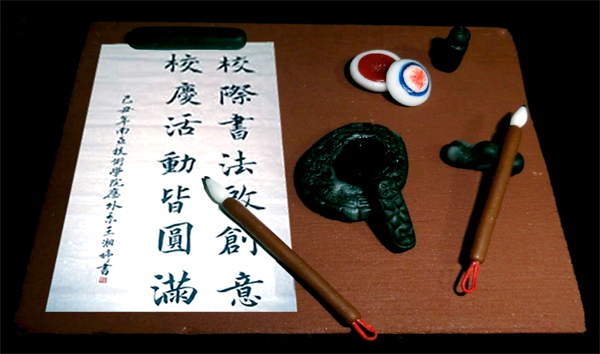 校際書法啟創意
校慶活動皆圓滿
己丑年南亞技術學院應外系王湘婷書